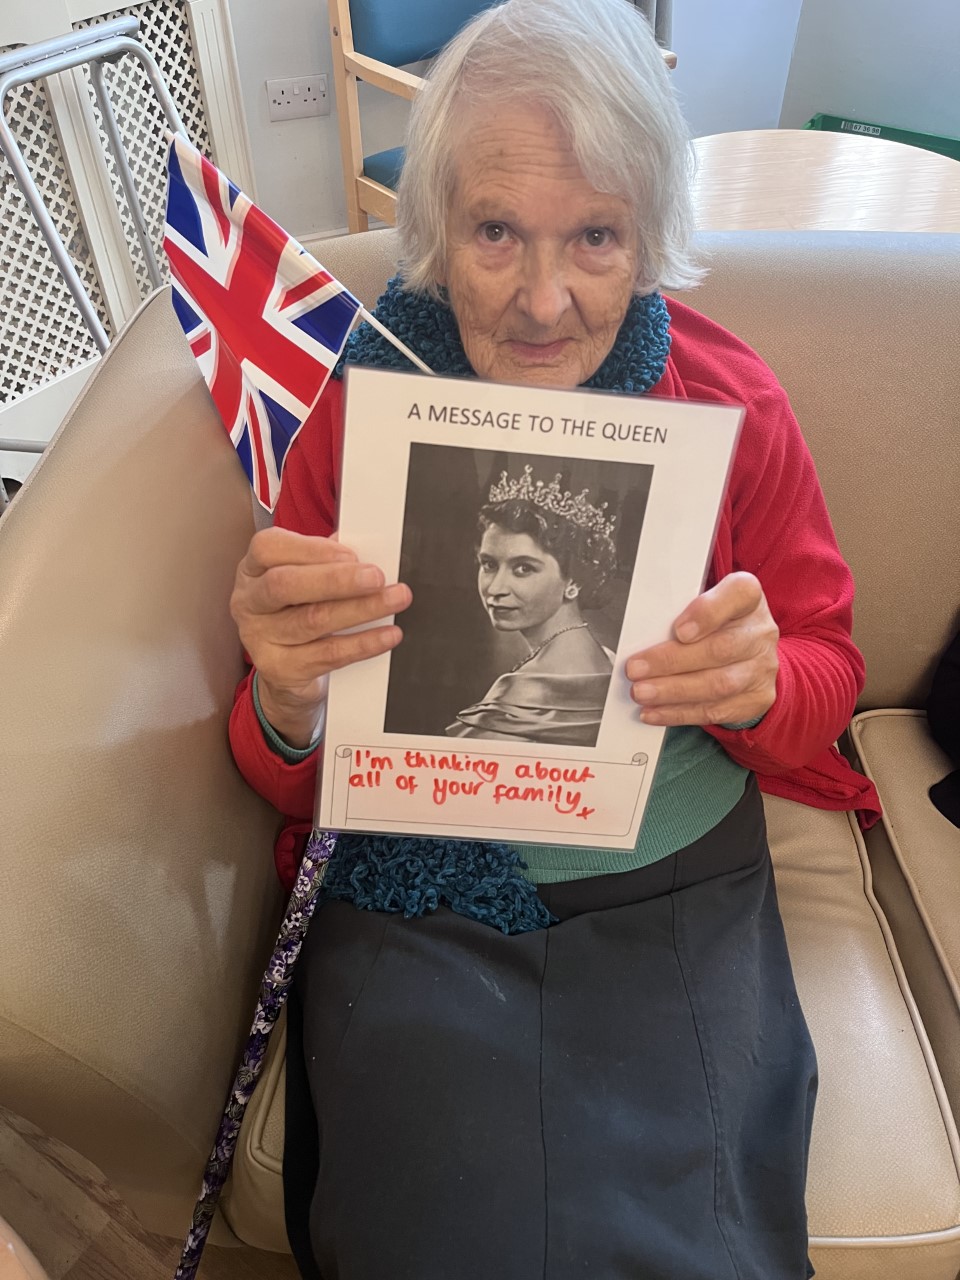 A MESSAGE TO THE QUEEN
I'm thinking about
all of your family x